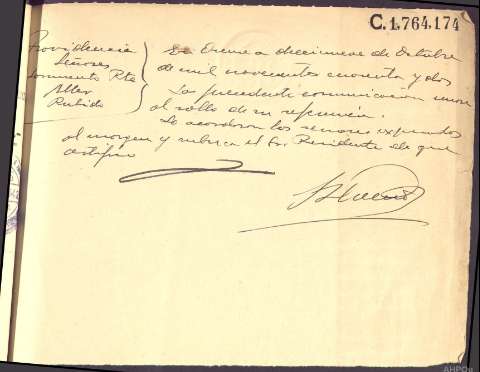 C.1.764.174
Providencia
Señores
Sarmiento Pte
Aller
Pulido
En Orense a diecinueve de Octubre
de mil novecientos cincuenta y dos
La precedente comunicación unase
al rollo de su referencia.
Lo acordaron los señores expresados
al margen y rubrica el Sr. Presidente de que
certifico
AHPOu